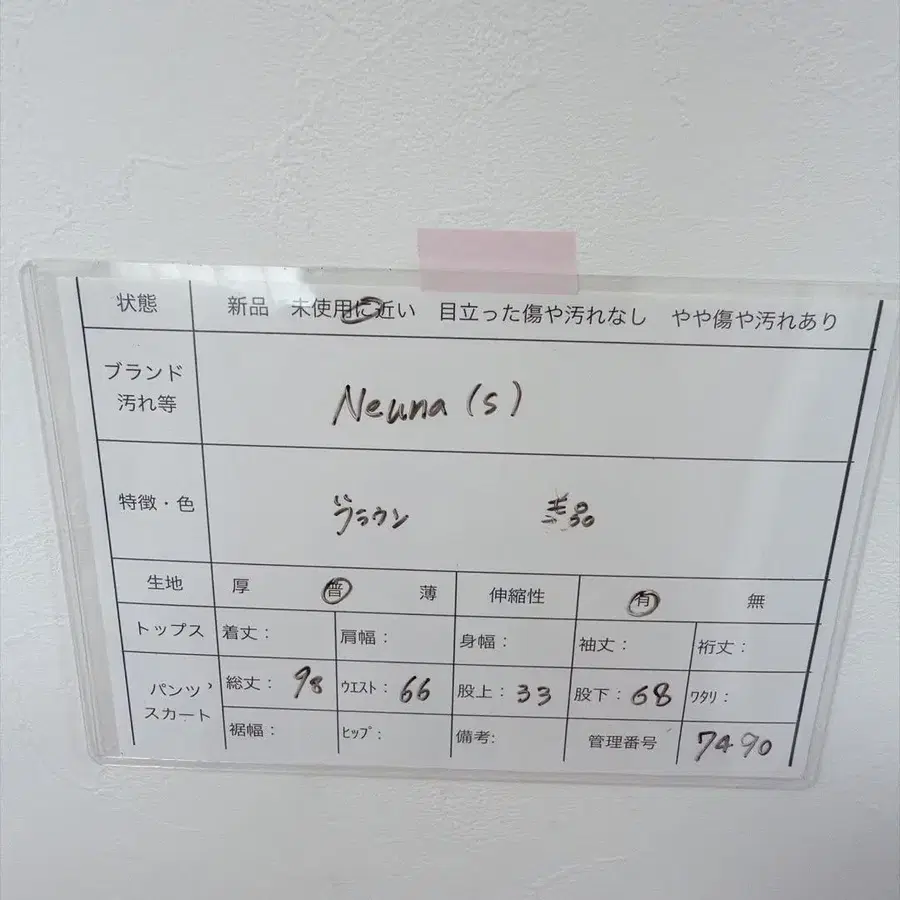 状態 新品 未使用に近い 目立った傷や汚れなし やや傷や汚れあり
ブランド
汚れ等
Neuna (S)
特徴・色 ブラウン 美品
生地 厚 普 薄 伸縮性 有 無
トップス 着丈： 肩幅： 身幅： 袖丈： 裄丈：
パンツ，
スカート
総丈：98 ｳｴｽﾄ：66 股上：33 股下：68 ﾜﾀﾘ：
裾幅： ﾋｯﾌﾟ： 備考: 管理番号 7490